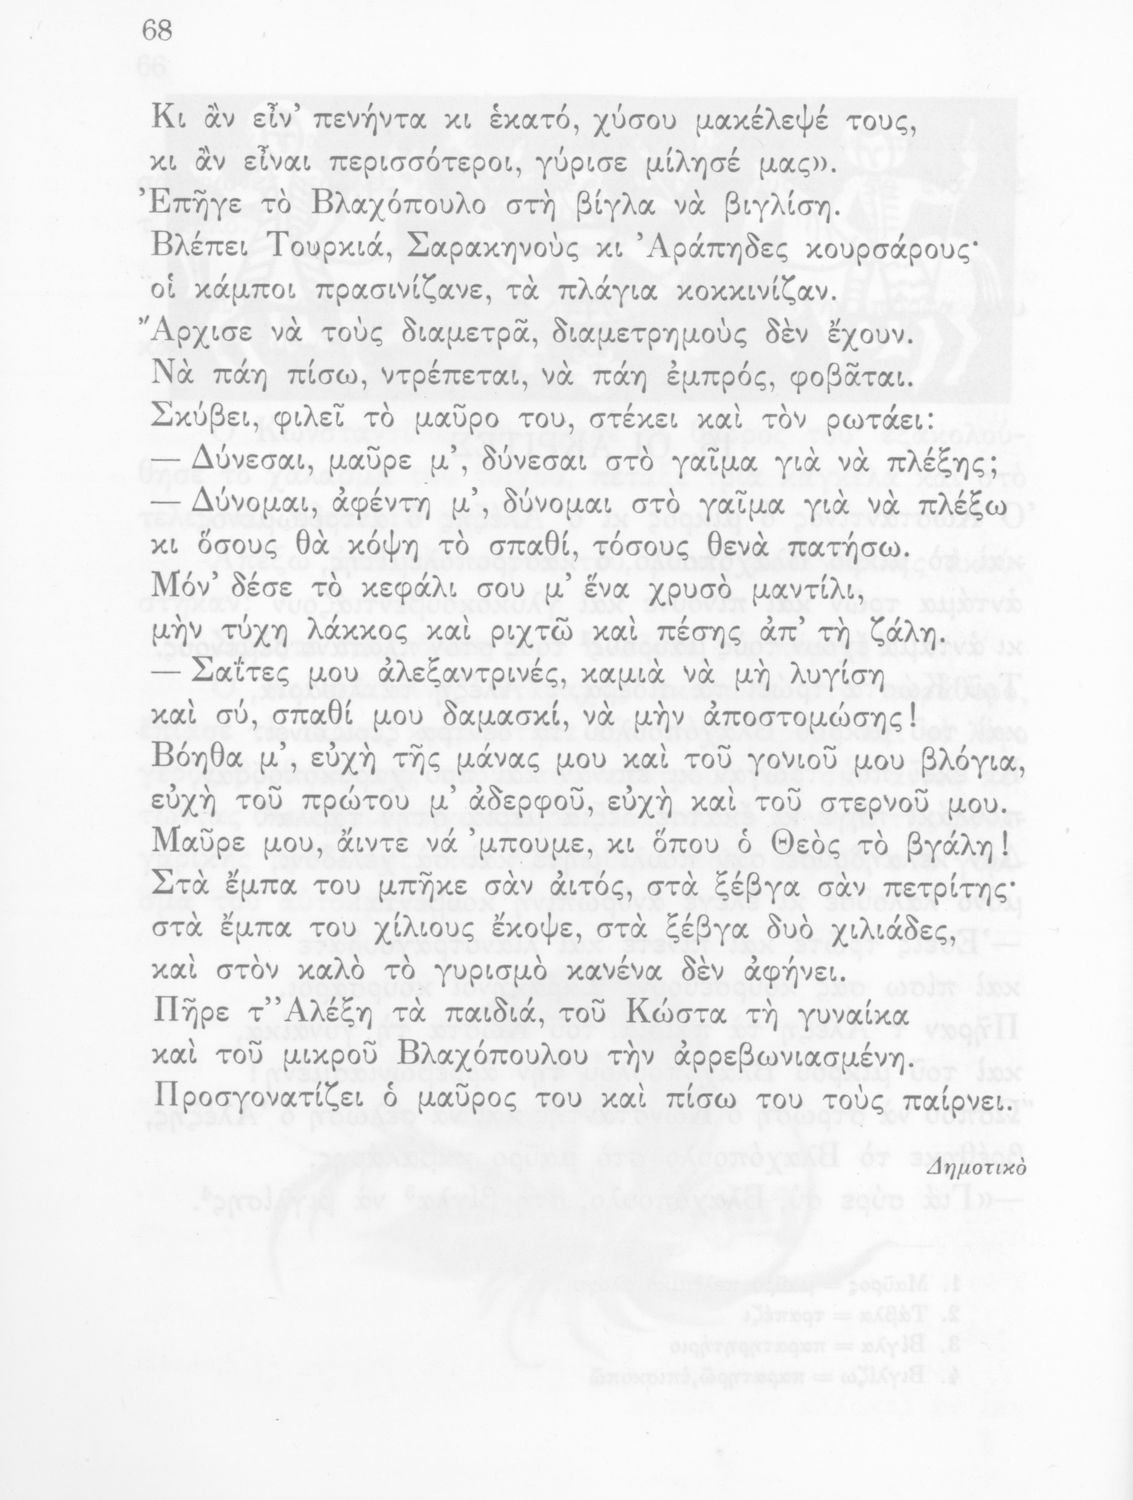 68
Κι ἂν εἶν’ πενήντα κι ἑκατό, χύσου μακέλεψέ τους,
κι ἂν εἶναι περισσότεροι, γύρισε μίλησέ μας».
Ἐπῆγε τὸ Βλαχόπουλο στὴ βίγλα νὰ βιγλίση.
Βλέπει Τουρκιά, Σαρακηνοὺς κι Ἀράπηδες κουρσάρους·
οἱ κάμποι πρασινίζανε, τὰ πλάγια κοκκινίζαν.
Ἄρχισε νὰ τοὺς διαμετρᾶ, διαμετρημοὺς δὲν ἔχουν.
Νὰ πάη πίσω, ντρέπεται, νὰ πάη ἐμπρός, φοβᾶται.
Σκύβει, φιλεῖ τὸ μαῦρο του, στέκει καὶ τὸν ρωτάει:
— Δύνεσαι, μαῦρε μ’, δύνεσαι στὸ γαῖμα γιὰ νὰ πλέξης;
— Δύνομαι, ἀφέντη μ’, δύνομαι στὸ γαῖμα γιὰ νὰ πλέξω
κι ὅσους θὰ κόψη τὸ σπαθί, τόσους θενὰ πατήσω.
Μόν’ δέσε τὸ κεφάλι σου μ’ ἕνα χρυσὸ μαντίλι,
μὴν τύχη λάκκος καὶ ριχτῶ καὶ πέσης ἀπ’ τὴ ζάλη.
— Σαΐτες μου ἀλεξαντρινές, καμιὰ νὰ μὴ λυγίση
καὶ σύ, σπαθί μου δαμασκί, νὰ μὴν ἀποστομώσης!
Βόηθα μ’, εὐχὴ τῆς μάνας μου καὶ τοῦ γονιοῦ μου βλόγια,
εὐχὴ τοῦ πρώτου μ’ ἀδερφοῦ, εὐχὴ καὶ τοῦ στερνοῦ μου.
Μαῦρε μου, ἄιντε νά ’μπουμε, κι ὅπου ὁ Θεὸς τὸ βγάλη!
Στὰ ἔμπα του μπῆκε σὰν ἀιτός, στὰ ξέβγα σὰν πετρίτης·
στὰ ἔμπα του χίλιους ἔκοψε, στὰ ξέβγα δυὸ χιλιάδες,
καὶ στὸν καλὸ τὸ γυρισμὸ κανένα δὲν ἀφήνει.
Πῆρε τ’ Ἀλέξη τὰ παιδιά, τοῦ Κώστα τὴ γυναίκα
καὶ τοῦ μικροῦ Βλαχόπουλου τὴν ἀρρεβωνιασμένη.
Προσγονατίζει ὁ μαῦρος του καὶ πίσω του τοὺς παίρνει.
Δημοτικὸ